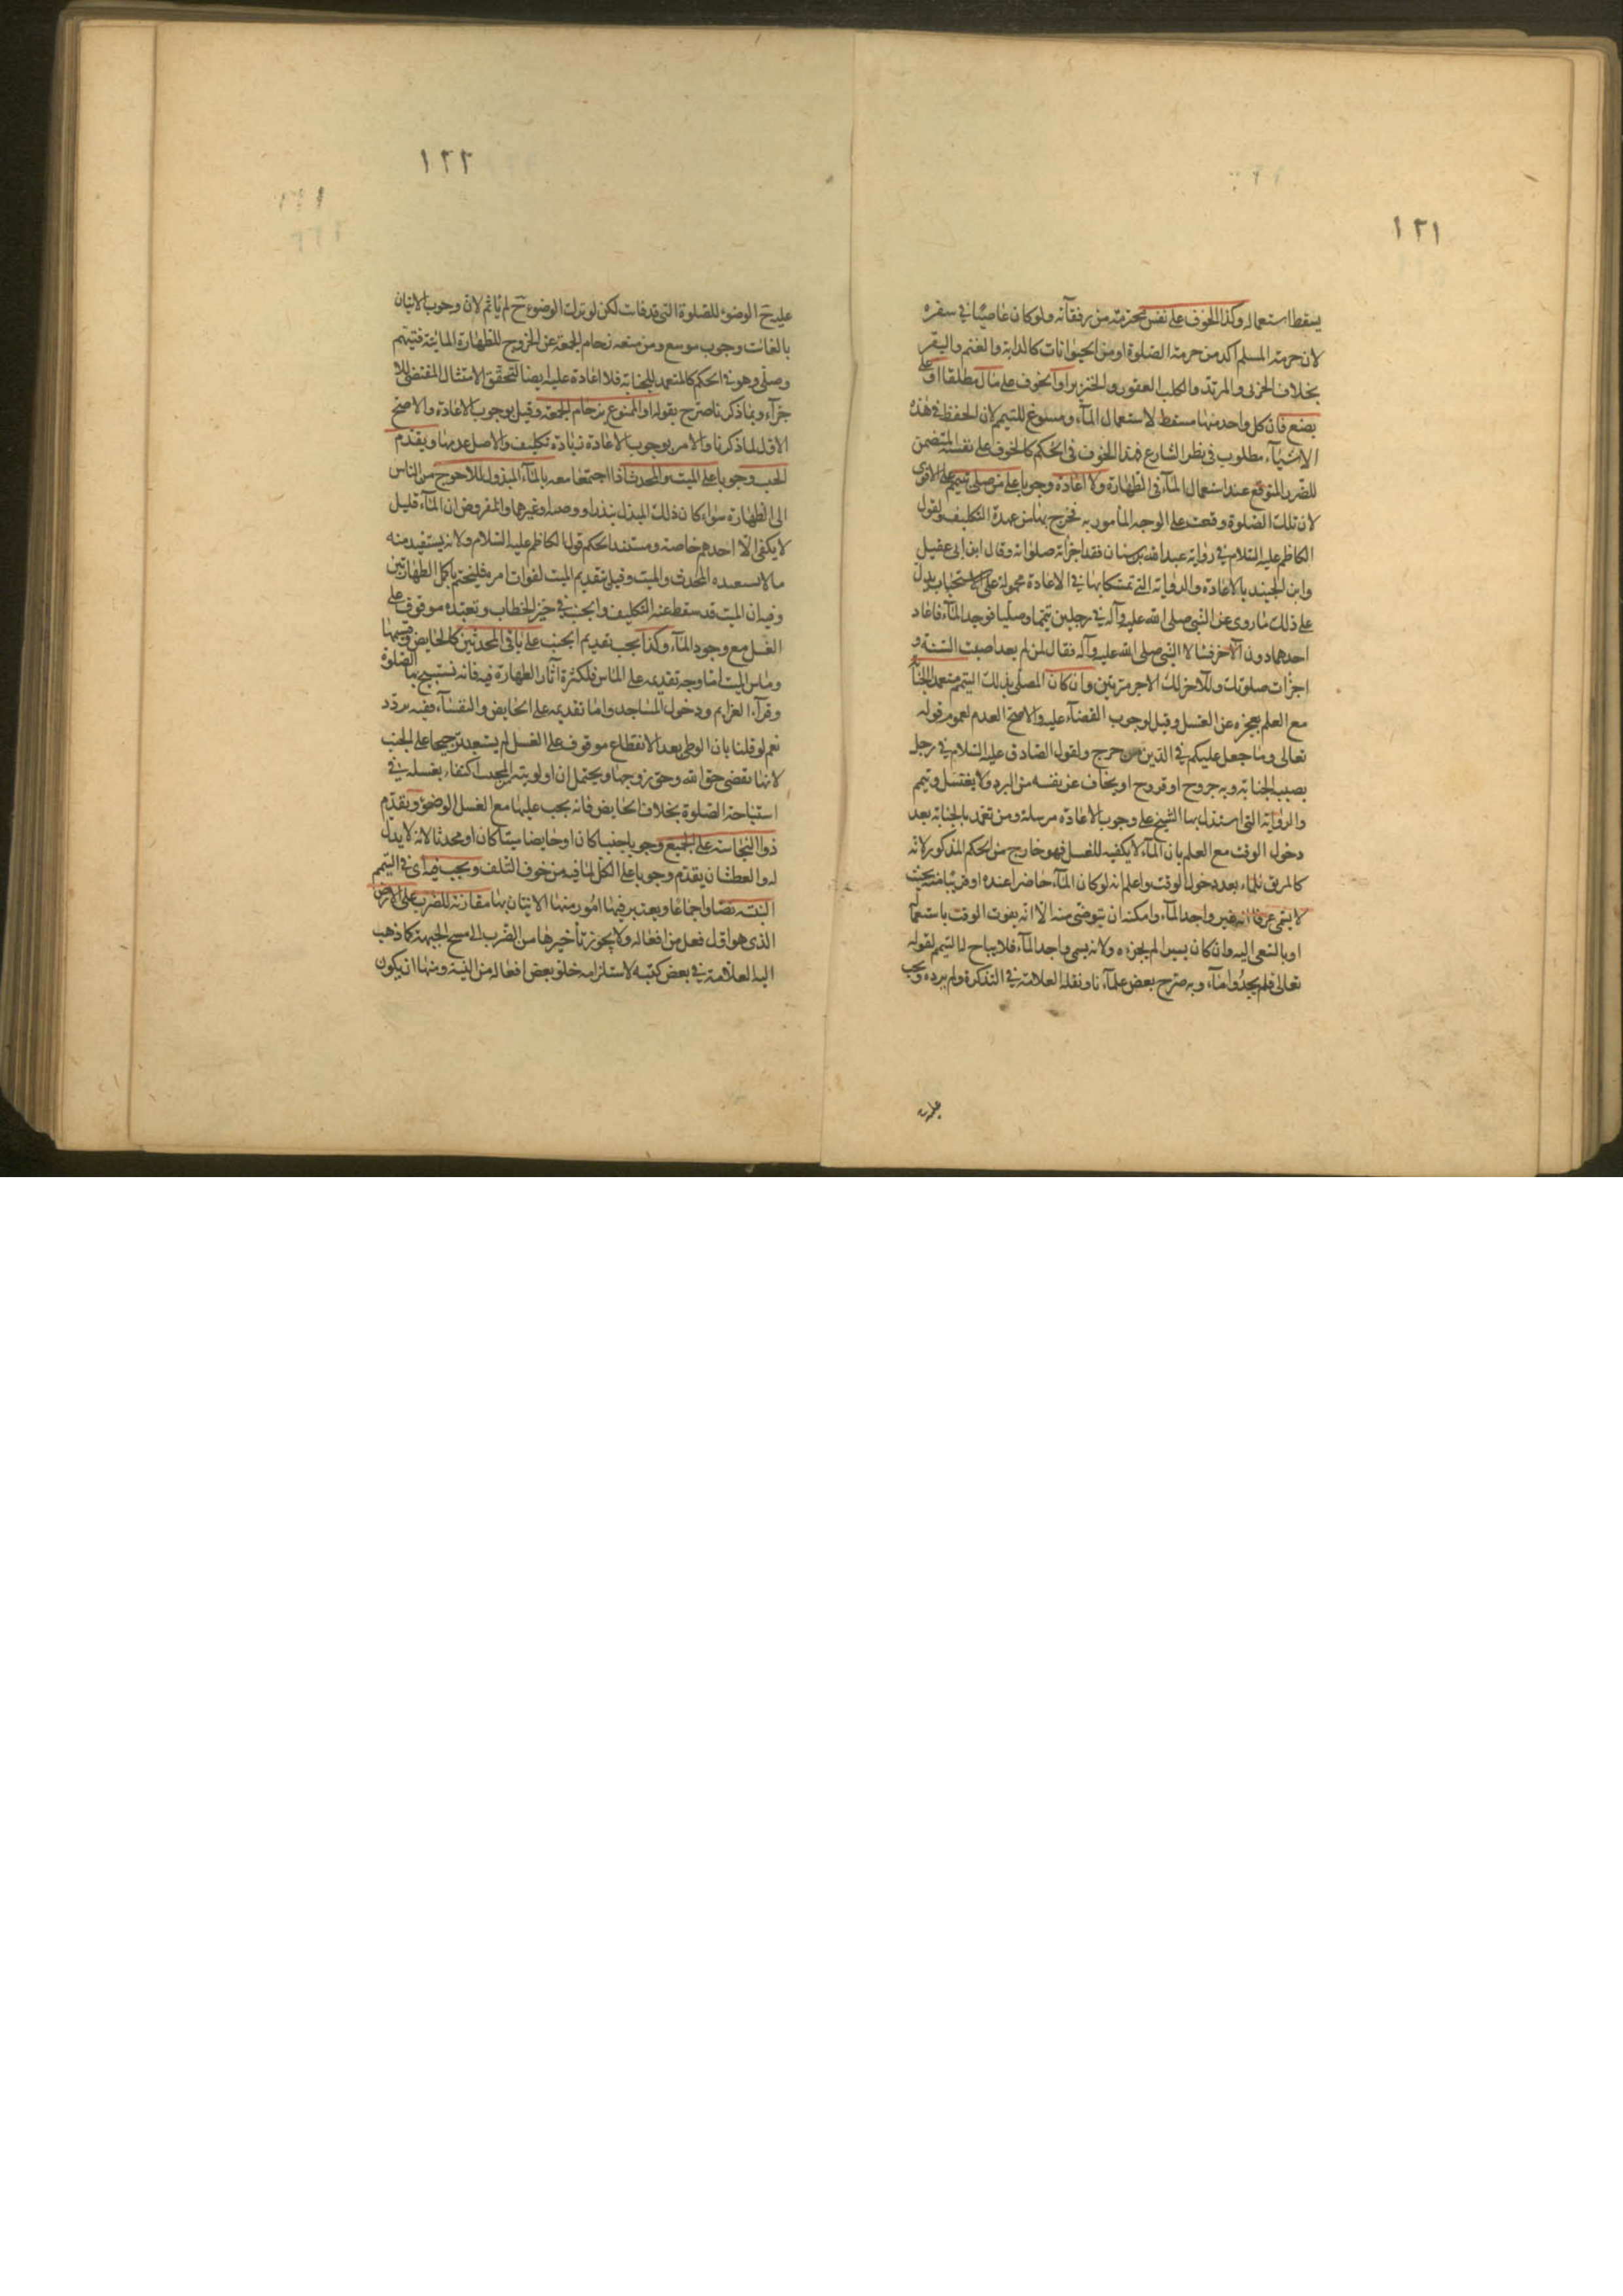 ١٢١
يسقط استعماله وكذا الخوف على نفس محترمة من رفقائه ولو كان عاصيًا في سفره
لان حرمة المسلم اكد من حرمة الصلوة او من الحيوانات كالدابة والغنم والبقر
بخلاف الحربى والمرتد والكلب العقور والخنزير او الخوف على مال مطلقا او على
بضع فان كل واحد منها مسقط لاستعمال المآء ومسوغ للتيمم لان الحفظ في هذه
الاشيآء مطلوب في نظر الشارع فهذا الخوف في الحكم كالخوف على نفسه المتضمن
للضرر المتوقع عند استعمال المآء في الطهارة ولا اعادة وجوبا على من صلى بتيممه على الاقوى
لان تلك الصلوة وقعت على الوجه المامور به فخرج بها من عهدة التكليف ولقول
الكاظم عليه السلام في رواية عبد الله بن سنان فقد اجزاته صلوته وقال ابن ابى عقيل
وابن الجنيد بالاعادة والرواية التى تمسكا بها في الاعادة محمولة على الاستحباب يدل
على ذلك ما روى عن النبى صلى الله عليه وآله في رجلين تيمما وصليا فوجد المآء فاعاد
احدهما دون الآخر فسالا النبى صلى الله عليه وآله فقال لمن لم يعد اصبت السنة و
اجزات صلوتك وللآخر لك الاجر مرتين وان كان المصلى بذلك التيمم متعمد الجنا
مع العلم بعجزه عن الغسل وقيل وجوب القضآء عليه والاصح العدم لعموم قوله
تعالى وما جعل عليكم في الدين من حرج ولقول الصادق عليه السلام في رجل
يصيب الجنابة وبه جروح او قروح او يخاف عن نفسه من البرد ولا يغتسل ويتيمم
والرواية التى استدل بها الشيخ على وجوب الاعادة مرسلة ومن تعمد بالجنابة بعد
دخول الوقت مع العلم بان المآء لا يكفيه للغسل فهو خارج من الحكم المذكور لانه
كالمريق للماء بعد دخول الوقت واعلم انه لو كان المآء حاضرا عنده او قريبا منه بحيث
لا يسمى عرفا انه غير واجد المآء وامكنه ان يتوضى منه الا انه يفوت الوقت باستعما
او بالسعى اليه وان كان يسيرا لم يجزه ولانه يسمى واجد المآء فلا يباح له التيمم لقوله
تعالى فلم يجدوا مآء وبه صرح بعض علمآءنا ونقله العلامة في التذكرة ولم يرده ويجب
عليه
١٢٢
عليه ح الوضوء للصلوة التى قد فاتت لكن لو ترك الوضوء ح لم ياثم لان وجوب الاتيان
بالفائت وجوب موسع ومن منعه زحام الجمعة عن الخروج للطهارة المائية فتيمم
وصلى وهو في الحكم كالمتعمد للجنابة فلا اعادة عليه ايضا لتحقق الامتثال المقتضى للا
جزآء وبما ذكرنا صرح بقوله او الممنوع بزحام الجمعة وقيل بوجوب الاعادة والاصح
الاول لما ذكرنا والامر بوجوب الاعادة زيادة تكليف والاصل عدمها ويقدم
الجنب وجوبا على الميت والمحدث اذا اجتمعا معه بالمآء المبذول للاحوج من الناس
الى الطهارة سواء كان ذلك المبذل بنذر او وصية وغيرهما والمفروض ان المآء قليل
لا يكفى الا احدهم خاصة ومستند الحكم قول الكاظم عليه السلام ولانه يستفيد منه
ما لا يستفيده المحدث والميت وقيل بتقديم الميت لفوات امره فليختم باكمل الطهارتين
وفيه ان الميت قد سقط عنه التكليف والجنب في حيز الخطاب وتعبده موقوف على
الغسل مع وجود المآء وكذا يجب تقديم الجنب على باقى المحدثين كالحايض وقسيمها
وماس الميت اما وجه تقديمه على الماس فلكثرة آثار الطهارة فيه فانه تستبيح بها الصلوة
وقرآءة العزايم ودخول المساجد واما تقديمه على الحايض والنفساء ففيه تردد
نعم لو قلنا بان الوطى بعد الانقطاع موقوف على الغسل لم يستبعد ترجيحها على الجنب
لانها تقضى حق الله وحق زوجها ويحتمل ان اولوية الجنب اكتفاء بغسله في
استباحة الصلوة بخلاف الحايض فانه يجب عليها مع الغسل الوضوء ويقدم
ذو النجاسة على الجميع وجوبا جنبا كان او حايضا ميتا كان او محدثا لانه لا بدل
له والعطشان يقدم وجوبا على الكل لما فيه من خوف التلف ويجب فيه اى في التيمم
النية نصا واجماعا ويعتبر فيها امور منها الاتيان بها مقارنة للضرب على الارض
الذى هو اول فعل من افعاله ولا يجوز تأخيرها من الضرب الى مسح الجبهة كما ذهب
اليه العلامة في بعض كتبه لاستلزامه خلو بعض افعاله من النية ومنها ان يكون